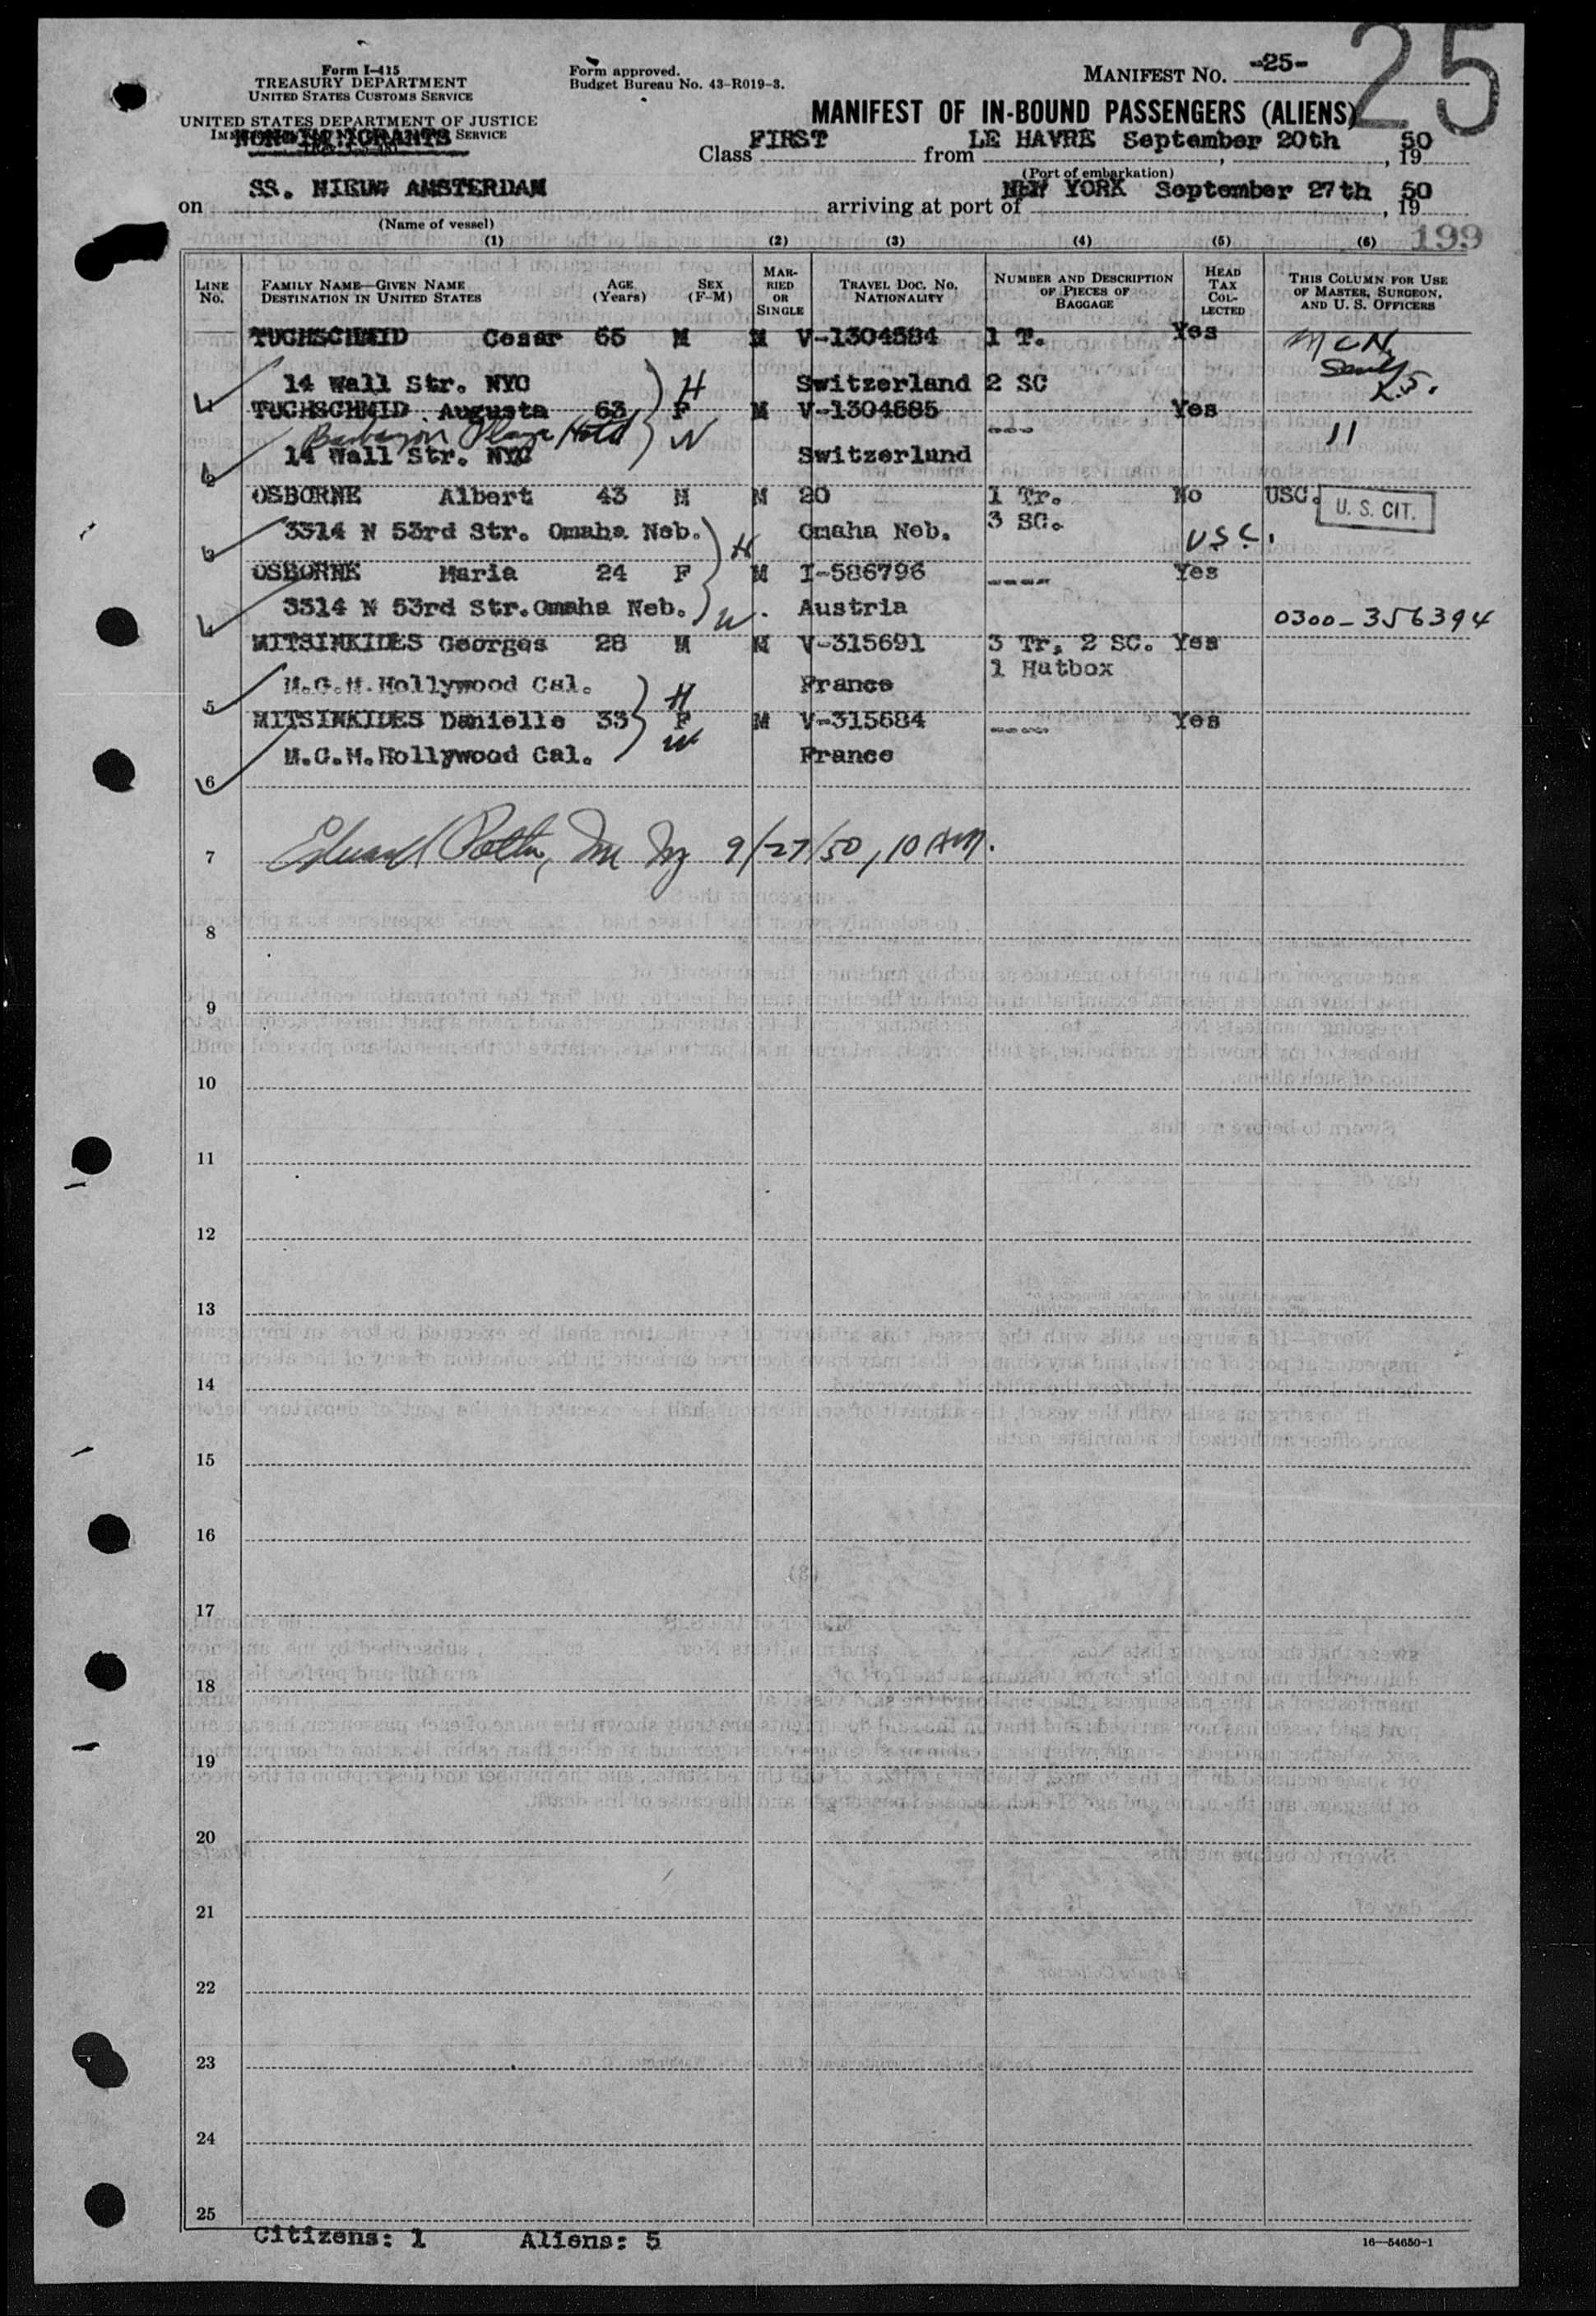 25
Form I-415
TREASURY DEPARTMENT
UNITED STATES CUSTOMS SERVICE
UNITED STATES DEPARTMENT OF JUSTICE
Form approved.
Budget Bureau No. 43-R019-3.
MANIFEST NO. -25-
MANIFEST OF IN-BOUND PASSENGERS (ALIENS)
Class FIRST from LE HAVRE September 20th, 19 50
(Port of embarkation)
on SS. NIEUW AMSTERDAM arriving at port of NEW YORK September 27th, 19 50
(Name of vessel)
(1) (2) (3) (4) (5) (6) 199
LINE No. FAMILY NAME—GIVEN NAME DESTINATION IN UNITED STATES AGE (Years) SEX (F-M) MARRIED OR SINGLE TRAVEL DOC. NO. NATIONALITY NUMBER AND DESCRIPTION OF PIECES OF BAGGAGE HEAD TAX COLLECTED THIS COLUMN FOR USE OF MASTER, SURGEON, AND U. S. OFFICERS
TUCHSCHMID Cesar 65 M M V-1304684 1 T. Yes
14 Wall Str. NYC H Switzerland 2 SC
TUCHSCHMID Augusta 63 F M V-1304685 ---- Yes 11
Barbizon Plaza Hotel W
14 Wall Str. NYC Switzerlund
OSBORNE Albert 43 M M 20 1 Tr. No USC. U. S. CIT.
3 3314 N 53rd Str. Omaha Neb. H Omaha Neb. 3 SC. U.S.C.
OSBORNE Maria 24 F M I-586796 ---- Yes
4 3314 N 53rd Str.Omaha Neb. W. Austria 0300-356394
MITSINKIDES Georges 28 M M V-315691 3 Tr, 2 SC. Yes
1 Hatbox
5 M.G.M.Hollywood Cal. H France
MITSINKIDES Danielle 33 F M V-315684 ---- Yes
W
M.G.M.Hollywood Cal. France
6
7 9/27/50, 10 AM.
8
9
10
11
12
13
14
15
16
17
18
19
20
21
22
23
24
25
Citizens: 1 Aliens: 5
16—54650-1